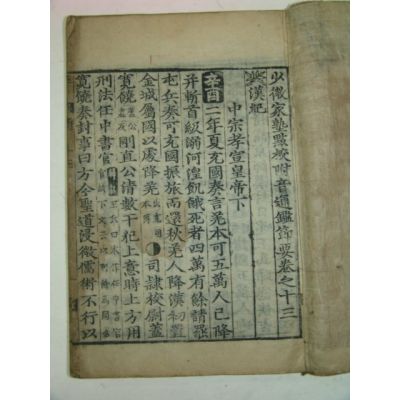 少微家塾點校附音通鑑節要卷之十三
漢紀
中宗孝宣皇帝下
辛酉二年夏充國奏言羌本可五萬人已降
并斬首級溺河湟飢餓死者四萬有餘請罷
屯兵奏可充國振旅而還秋羌人降漢初置
金城屬國以處降羌出充國本傳司隷校尉蓋
寬饒剛直公清數干犯上意時上方用
刑法任中書官
寬饒奏封事曰方今聖道浸微儒術不行以